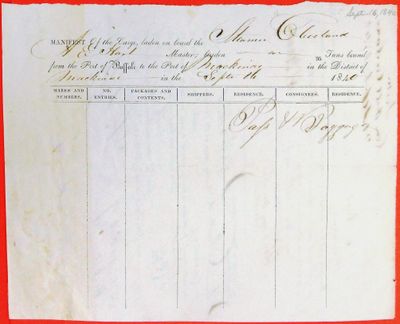 Sept 16, 1840
MANIFEST Of the Cargo, laden on board the Steamer Cleveland
Master, burden Tons bound
from the Port of Buffalo to the Port of Mackinac in the District of
Mackinac in the Septr 16 1840
MARKS AND NUMBERS. NO. ENTRIES. PACKAGES AND CONTENTS. SHIPPERS. RESIDENCE. CONSIGNEES. RESIDENCE.
Pass & Baggage